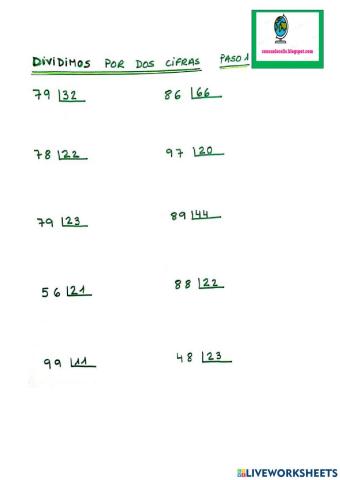 DIVIDIMOS POR DOS CIFRAS PASO 1
79 32 86 66
78 22 97 20
79 23 89 44
56 21 88 22
99 11 48 23
LIVEWORKSHEETS